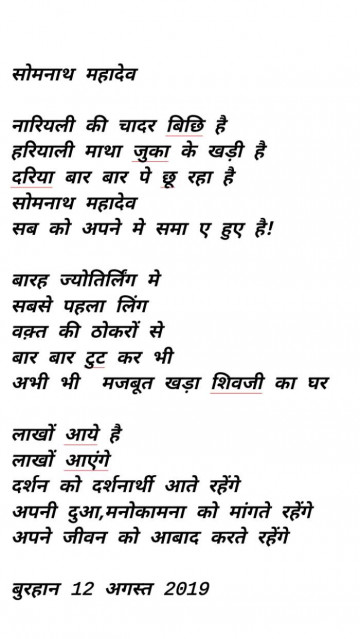 सोमनाथ महादेव
नारियली की चादर बिछि है
हरियाली माथा जुका के खड़ी है
दरिया बार बार पे छू रहा है
सोमनाथ महादेव
सब को अपने मे समा ए हुए है!
बारह ज्योतिर्लिंग मे
सबसे पहला लिंग
वक़्त की ठोकरों से
बार बार टुट कर भी
अभी भी मजबूत खड़ा शिवजी का घर
लाखों आये है
लाखों आएंगे
दर्शन को दर्शनार्थी आते रहेंगे
अपनी दुआ,मनोकामना को मांगते रहेंगे
अपने जीवन को आबाद करते रहेंगे
बुरहान 12 अगस्त 2019